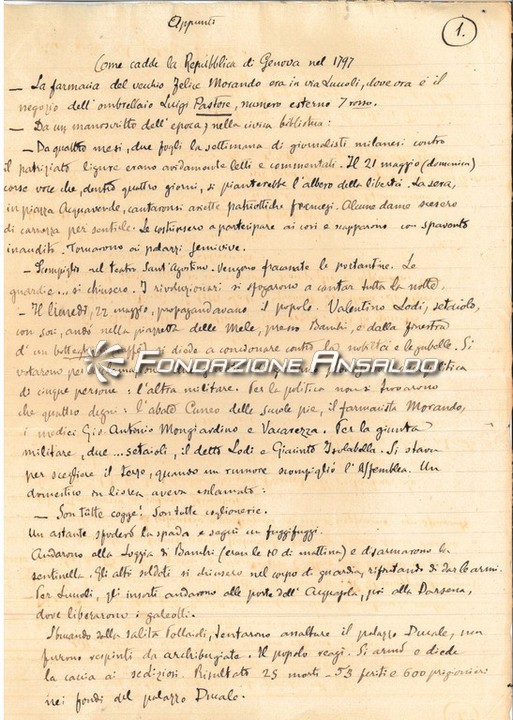 Appunti
1.
Come cadde la Repubblica di Genova nel 1797
— La farmacia del vecchio Felice Morando era in via Luccoli, dove ora è il
negozio dell'ombrellaio Luigi Pastore, numero esterno 7 rosso.
— Da un manoscritto dell'epoca, nella civica biblioteca:
— Da quattro mesi, due fogli la settimana di giornalisti milanesi contro
il patriziato ligure erano avidamente letti e commentati. Il 21 maggio (domenica)
corse voce che, dentro quattro giorni, si pianterebbe l'albero della libertà. La sera,
in piazza Acquaverde, cantaronsi ariette patriottiche francesi. Alcune dame scesero
di carrozza per sentirle. Le costrinsero a partecipare ai cori e scapparono con spavento
inaudito. Tornarono ai palazzi semivive.
— Scompiglio nel teatro Sant'Agostino. Vengono fracassate le portantine. Le
guardie... si chiusero. I rivoluzionari si sfogarono a cantar tutta la notte.
— Il lunedì, 22 maggio, propagandavano il popolo. Valentino Lodi, setaiolo,
con soci, andò nella piazzetta delle Mele, presso Banchi, e dalla finestra
d'un si diede a concionare contro la nobiltà e le gabelle. Si
FONDAZIONE ANSALDO
votarono politica
di cinque persone: l'altra militare. Per la politica non si trovarono
che quattro degni: l'abate Cuneo delle scuole pie, il farmacista Morando,
i medici Gio. Antonio Mongiardino e Vacarezza. Per la giunta
militare, due ... setaioli, il detto Lodi e Giacinto Isolabella. Si stava
per scegliere il terzo, quando un rumore scompigliò l'Assemblea. Un
domestico in livrea aveva esclamato:
— Son tutte cogge! Son tutte coglionerie.
Un astante sfoderò la spada e seguì un fuggifuggi.
Andarono alla Loggia di Banchi (eran le 10 di mattina) e disarmarono la
sentinella. Gli altri soldati si chiusero nel corpo di guardia, rifiutando di dar le armi.
Per Luccoli, gli insorti andarono alle porte dell'Acquasola, poi alla Darsena,
dove liberarono i galeotti.
Sbucando dalla salita Pollaioli, tentarono assaltare il palazzo Ducale, ma
furono respinti da archibugiate. Il popolo reagì. Si armò e diede
la caccia ai sediziosi. Risultato 25 morti - 53 feriti e 600 prigionieri
nei fondi del palazzo Ducale.